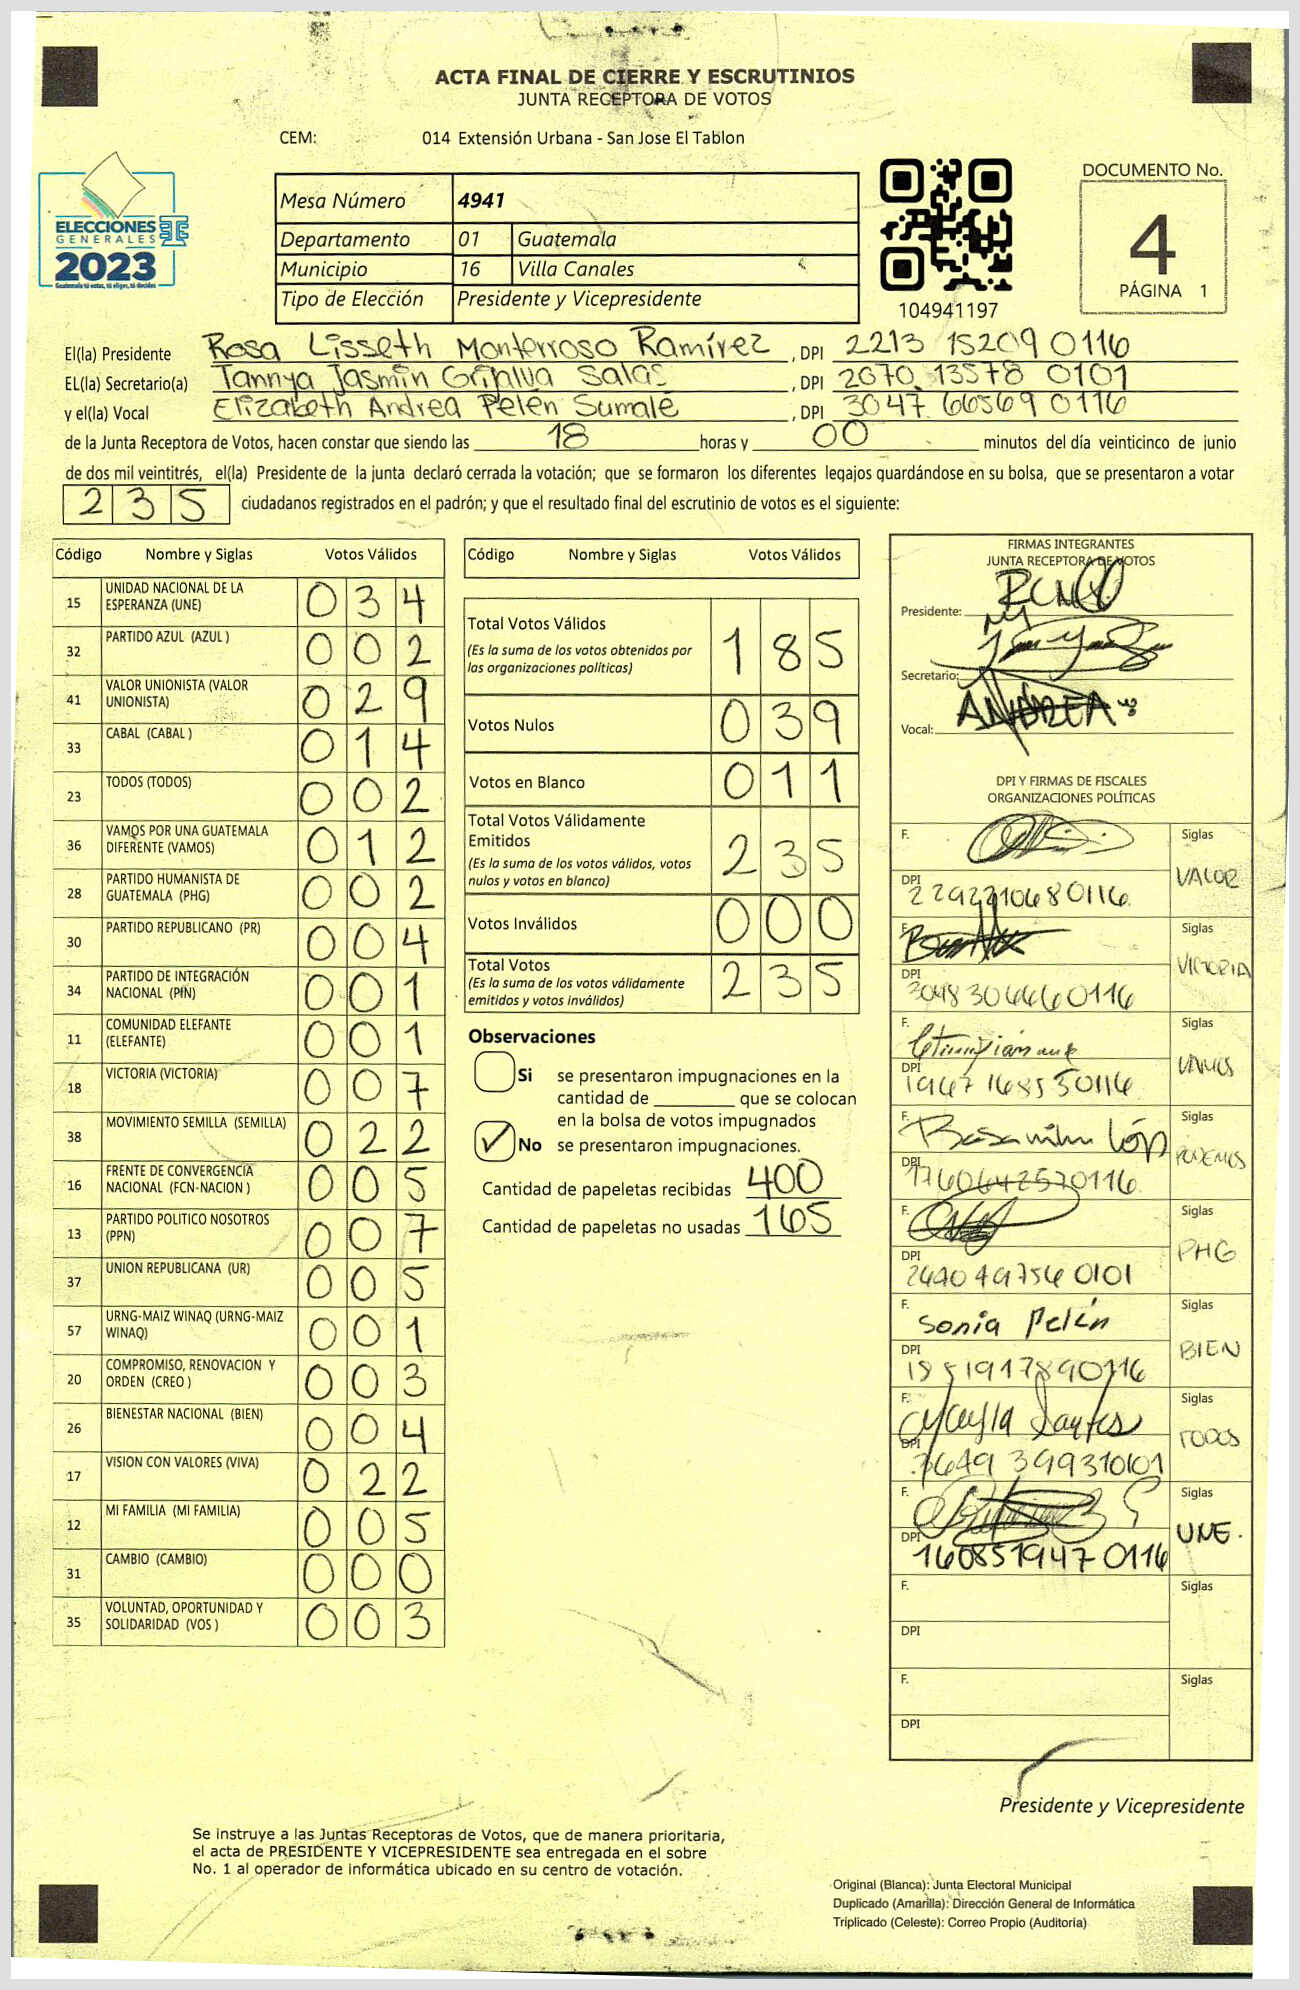 ACTA FINAL DE CIERRE Y ESCRUTINIOS
JUNTA RECEPTORA DE VOTOS
CEM: 014 Extensión Urbana - San Jose El Tablon
ELECCIONES
GENERALES
2023
Guatemala tú votas, tú eliges, tú decides
Mesa Número 4941
Departamento 01 Guatemala
Municipio 16 Villa Canales
Tipo de Elección Presidente y Vicepresidente
104941197
DOCUMENTO No.
4
PÁGINA 1
El(la) Presidente Rosa Lisseth Monterroso Ramírez, DPI 2213 15209 0116
EL(la) Secretario(a) Tannya Jasmin Grijalva Salas, DPI 2070 13578 0101
y el(la) Vocal Elizabeth Andrea Pelén Sumalé, DPI 3047 66569 0116
de la Junta Receptora de Votos, hacen constar que siendo las 18 horas y 00 minutos del día veinticinco de junio
de dos mil veintitrés, el(la) Presidente de la junta declaró cerrada la votación; que se formaron los diferentes legajos guardándose en su bolsa, que se presentaron a votar
235 ciudadanos registrados en el padrón; y que el resultado final del escrutinio de votos es el siguiente:
Código Nombre y Siglas Votos Válidos
15 UNIDAD NACIONAL DE LA ESPERANZA (UNE) 034
32 PARTIDO AZUL (AZUL ) 002
41 VALOR UNIONISTA (VALOR UNIONISTA) 029
33 CABAL (CABAL ) 014
23 TODOS (TODOS) 002
36 VAMOS POR UNA GUATEMALA DIFERENTE (VAMOS) 012
28 PARTIDO HUMANISTA DE GUATEMALA (PHG) 002
30 PARTIDO REPUBLICANO (PR) 004
34 PARTIDO DE INTEGRACIÓN NACIONAL (PIN) 001
11 COMUNIDAD ELEFANTE (ELEFANTE) 001
18 VICTORIA (VICTORIA) 007
38 MOVIMIENTO SEMILLA (SEMILLA) 022
16 FRENTE DE CONVERGENCIA NACIONAL (FCN-NACION ) 005
13 PARTIDO POLITICO NOSOTROS (PPN) 007
37 UNION REPUBLICANA (UR) 005
57 URNG-MAIZ WINAQ (URNG-MAIZ WINAQ) 001
20 COMPROMISO, RENOVACION Y ORDEN (CREO ) 003
26 BIENESTAR NACIONAL (BIEN) 004
17 VISION CON VALORES (VIVA) 022
12 MI FAMILIA (MI FAMILIA) 005
31 CAMBIO (CAMBIO) 000
35 VOLUNTAD, OPORTUNIDAD Y SOLIDARIDAD (VOS ) 003
Código Nombre y Siglas Votos Válidos
Total Votos Válidos 185
(Es la suma de los votos obtenidos por
las organizaciones políticas)
Votos Nulos 039
Votos en Blanco 011
Total Votos Válidamente
Emitidos 235
(Es la suma de los votos válidos, votos
nulos y votos en blanco)
Votos Inválidos 000
Total Votos 235
(Es la suma de los votos válidamente
emitidos y votos inválidos)
Observaciones
Si se presentaron impugnaciones en la
cantidad de ________ que se colocan
en la bolsa de votos impugnados
No se presentaron impugnaciones.
Cantidad de papeletas recibidas 400
Cantidad de papeletas no usadas 165
FIRMAS INTEGRANTES
JUNTA RECEPTORA DE VOTOS
Presidente:
Secretario:
Vocal: ANDREA
DPI Y FIRMAS DE FISCALES
ORGANIZACIONES POLÍTICAS
F. Siglas VALOR
DPI
F. Siglas VICTORIA
DPI 3048306660116
F. Siglas VAMOS
DPI 1967168530116
F. Siglas PODEMOS
DPI 1760642570116
F. Siglas PHG
DPI 2440497560101
F. Sonia Pelén Siglas BIEN
DPI 1851917890116
F. Siglas TODOS
DPI 3649399310101
F. Siglas UNE.
DPI 1608519470116
F. Siglas
DPI
F. Siglas
DPI
Presidente y Vicepresidente
Se instruye a las Juntas Receptoras de Votos, que de manera prioritaria,
el acta de PRESIDENTE Y VICEPRESIDENTE sea entregada en el sobre
No. 1 al operador de informática ubicado en su centro de votación.
Original (Blanca): Junta Electoral Municipal
Duplicado (Amarilla): Dirección General de Informática
Triplicado (Celeste): Correo Propio (Auditoría)